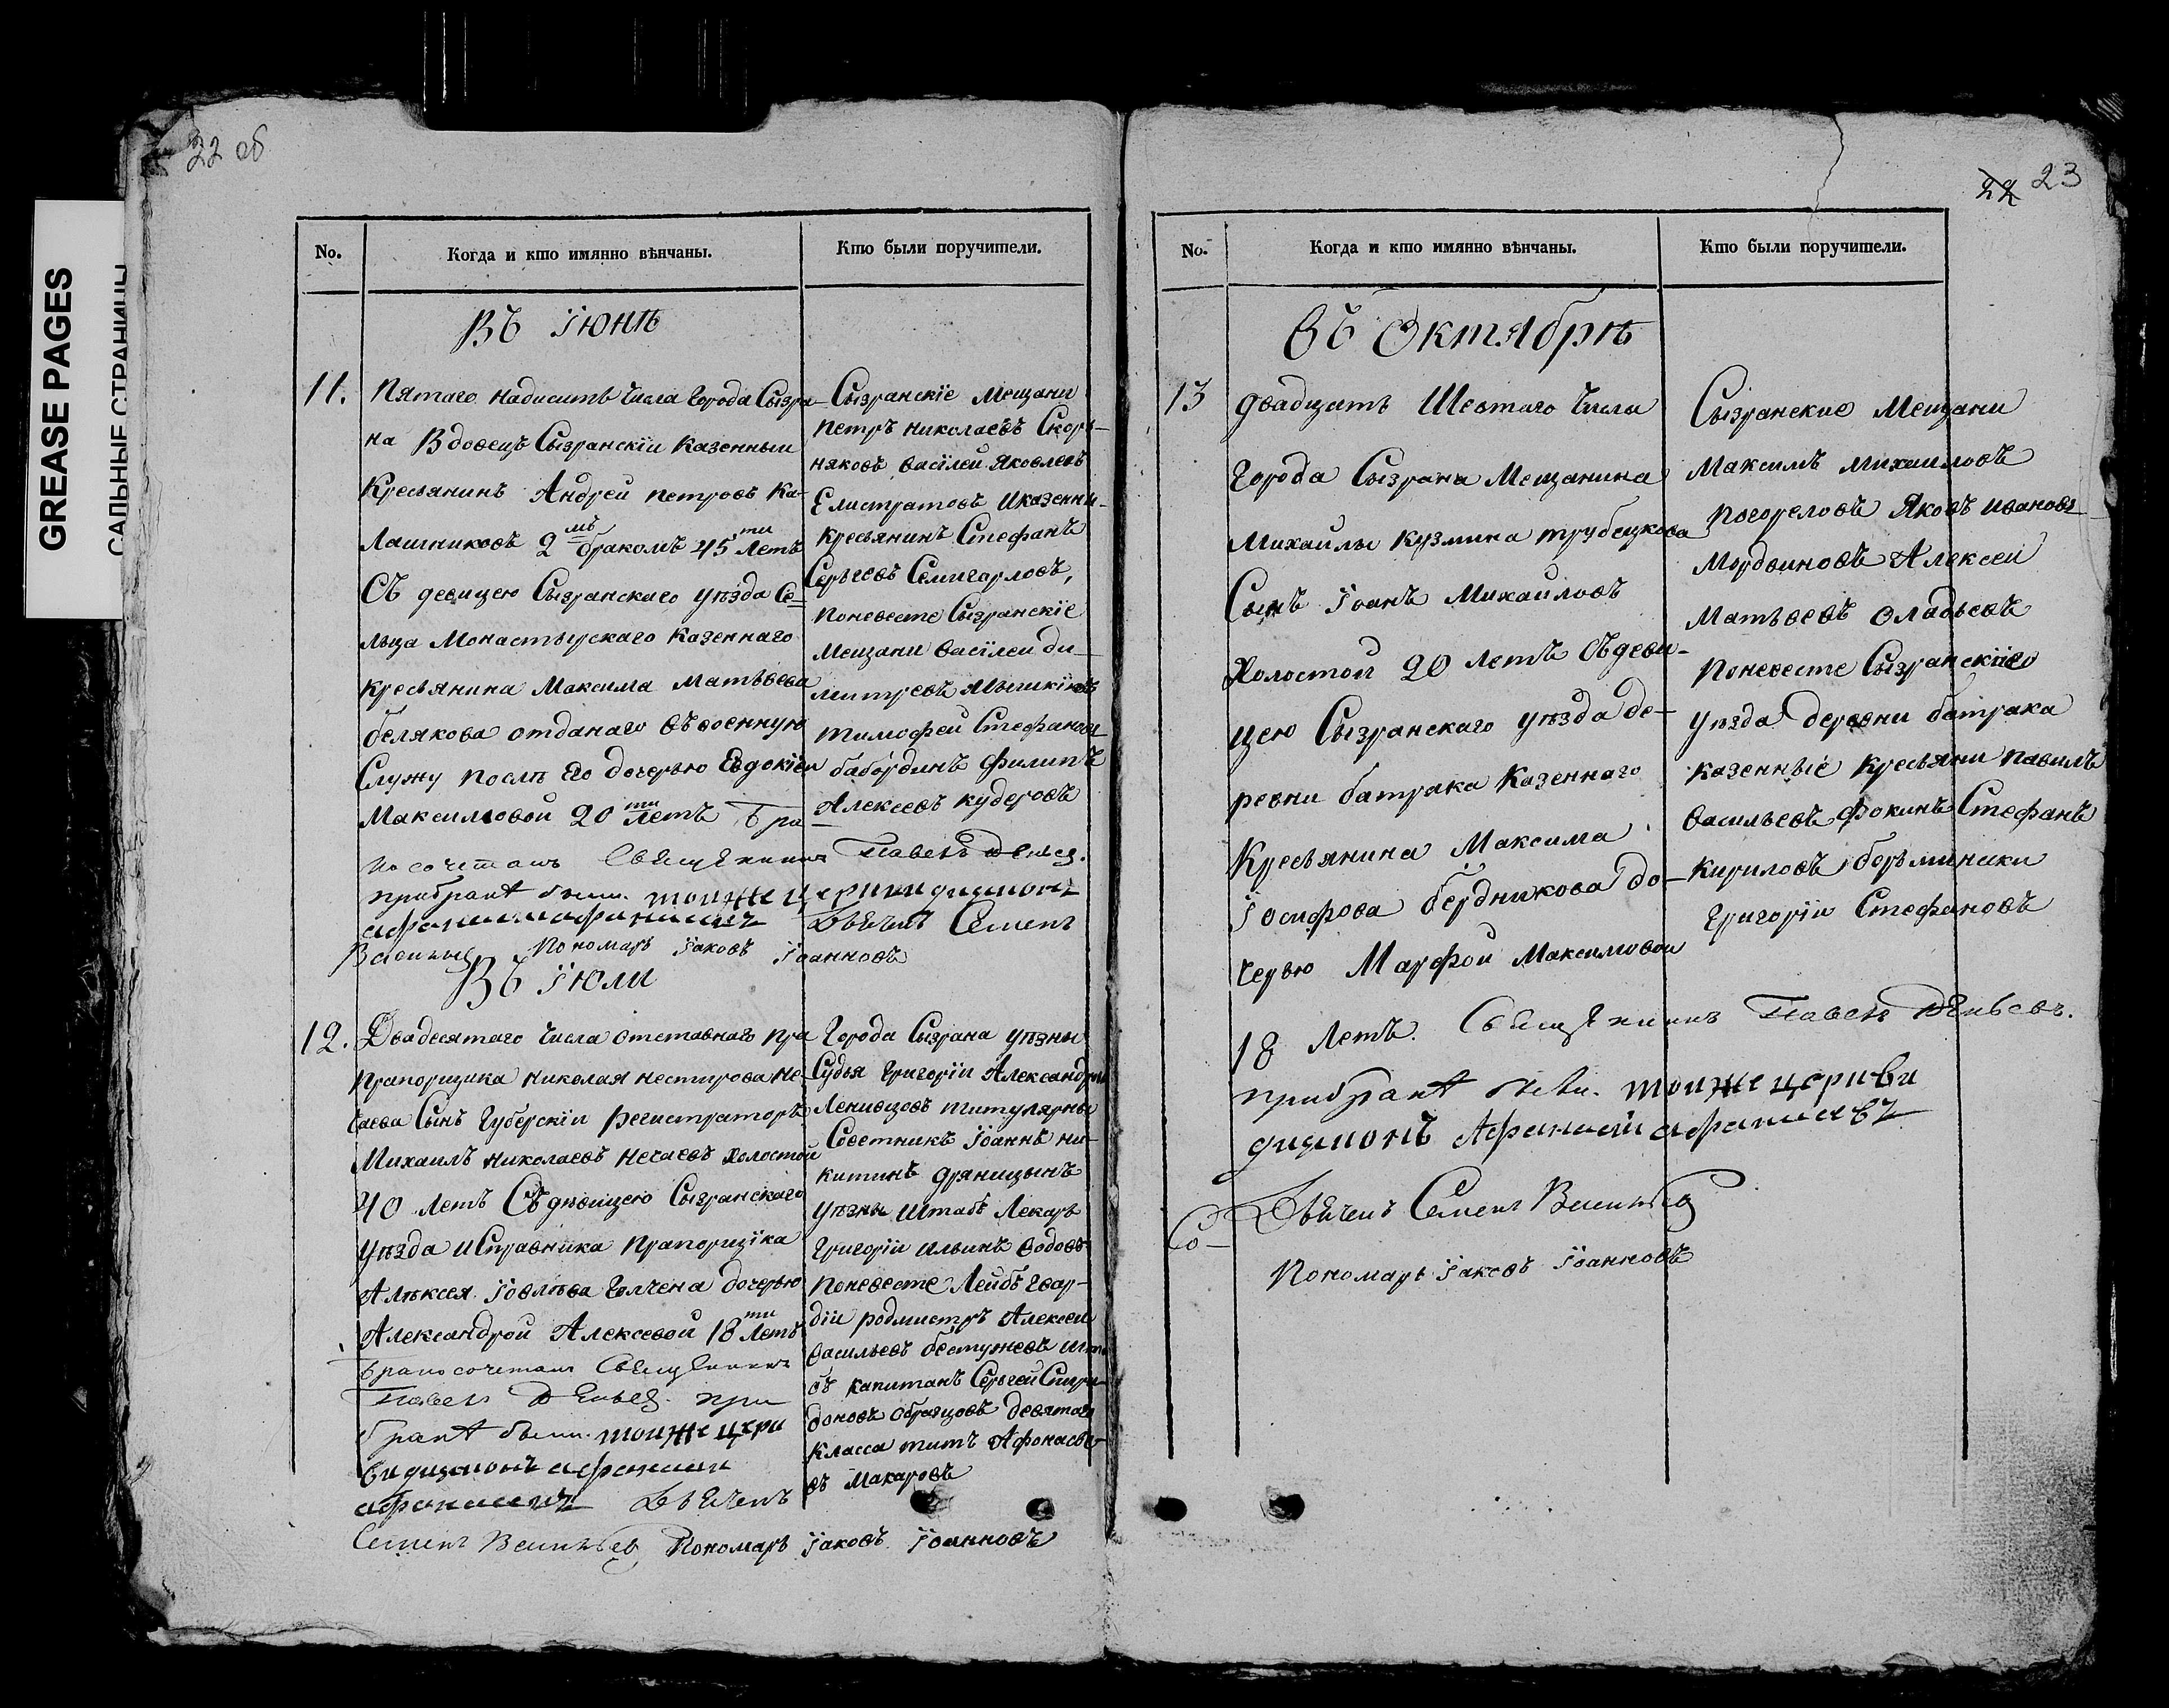 GREASE PAGES
САЛЬНЫЕ СТРАНИЦЫ
22 об
No.
Когда и кто имянно вѣнчаны.
Кто были поручители.
Въ Iюнѣ
11.
Пятаго надисить числа города Сызра-
на Вдовецъ Сызранскiи казенныи
Кресьянинъ Андреи Петровъ Ка-
лашниковъ 2мъ бракомъ 45ти Летъ
Съ девицею Сызранскаго уѣзда Се-
льца Монастырскаго казеннаго
кресьянина Максима Матвѣева
белякова отданаго въ военную
Службу послѣ Его дочерью Евдокiеи
Максимовой 20ти летъ Бра-
ко сочеталъ Священникъ Павелъ
при бракѣ были. тоиже церкви дияконъ
Дьячекъ Семенъ
Васильевъ Пономарь Iаковъ Iоанновъ
Сызранскiе Мещани
Петръ Николаевъ Скор-
няковъ Васiлеи Яковлевъ
Елистратовъ И казенни-
кресьянинъ Стефанъ
Сергѣевъ Семигорловъ,
Поневесте Сызранскiе
Мещани Васiлеи ди-
митревъ Мышкiнъ
тимофеи Стефановъ
бабординъ филипъ
Алексеевъ кудеровъ
Въ Iюли
12.
Двадесятаго числа отставнаго пра
прапорщика Николая нестирова Не-
чаева Сынъ Губерскiи регистраторъ
Михаилъ Николаевъ Нечаевъ Холостой
40 летъ Съ дѣвицею Сызранскаго
уѣзда и Справника прапорщiка
Алѣксея Iовлѣва дочерью
Александрой Алексевой 18ти летъ
Брако сочеталъ Священникъ
Павелъ при
бракѣ были. тоиже церк
ви дияконъ афанасии
афанасиевъ Дьячекъ
Семенъ Васильевъ Пономарь Iаковъ Iоанновъ
Города Сызрана уѣзны
Судья Григорiи Александровъ
Ленивцовъ титулярны
Советникъ Iоаннъ ни-
китинъ дряницынъ
уѣзны Штабъ Лекарь
Григорiи ильинъ
Поневесте Лейбъ гвар-
дiи родмистръ Алексеи
Васильевъ бестужевъ шта
бъ капитанъ Сергѣи Спири-
доновъ Образцовъ девятаго
класса титъ Афонасье-
въ Макаровъ
22 23
No.
Когда и кто имянно вѣнчаны.
Кто были поручители.
Въ Октябрѣ
13
двадцать Шестаго числа
города Сызрана Мещанина
Михаилы кузмина трубецкова
Сынъ Iоанъ Михаиловъ
Холостой 20 летъ Съ деви-
цею Сызранскаго уѣзда де-
ревни батрака казеннаго
кресьянина Максима
Iосифова бердникова до-
черью Марфой Максимовои
18 летъ. Священникъ Павелъ
при бракѣ были. тоиже церкви
дияконъ Афанасий афанасиевъ
Дьячекъ Семенъ Васильевъ
Пономарь Iаковъ Iоанновъ
Со-
Сызранские Мещани
Максимъ Михаиловъ
Погореловъ Яковъ ивановъ
Мордвиновъ Алексеи
Матвѣевъ оладьевъ
Поневесте Сызранскiего
уѣзда деревни батрака
казенные кресьяни Павилъ
Васильевъ фокинъ Стефанъ
кириловъ
Григорiи Стефановъ